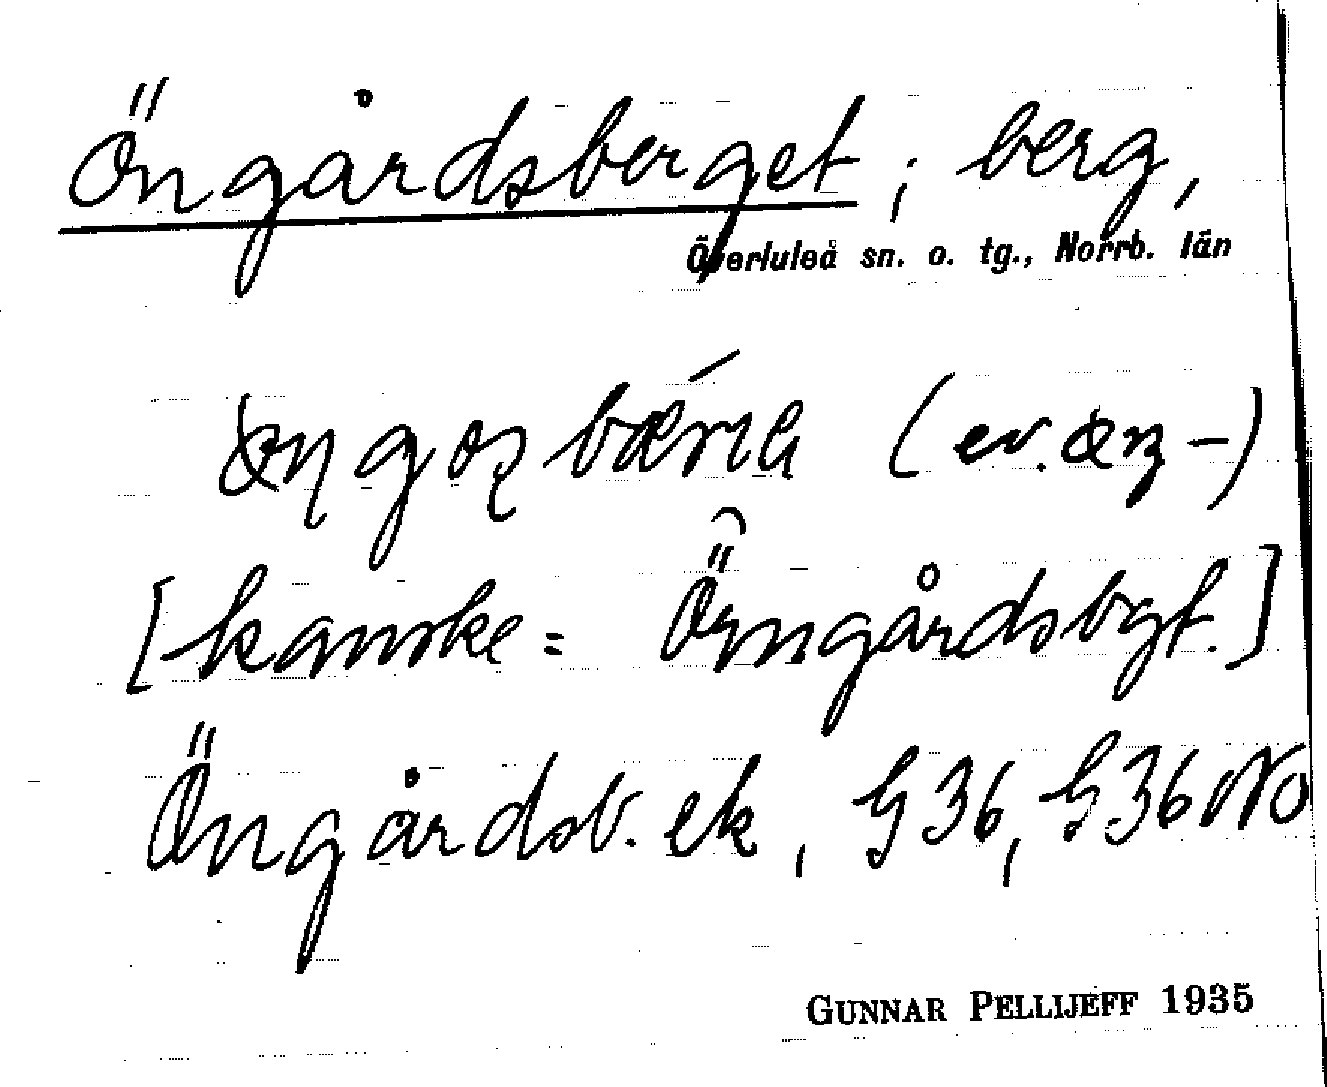 Öngårdsberget; berg,
Överluleå sn. o. tg., Norrb. län
(ev.
[kanske = Örngårdsbgt.]
Öngårdsb. ek, G36, G36 No
GUNNAR PELLIJEFF 1935